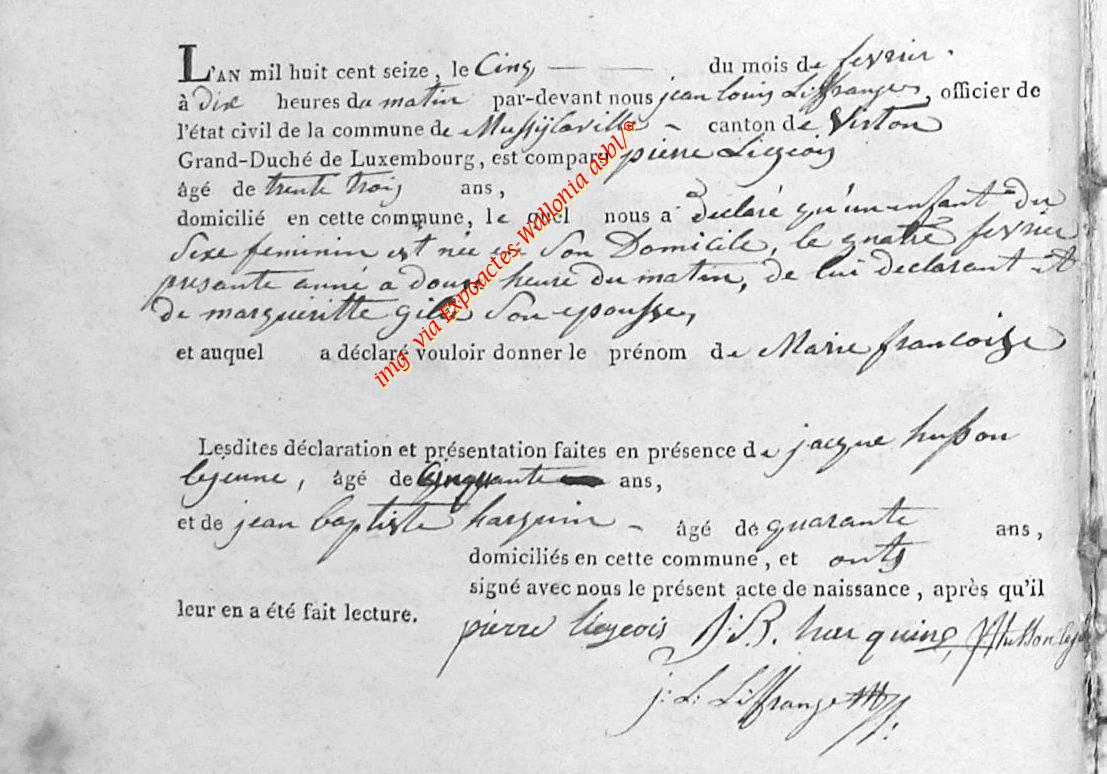 L'AN mil huit cent seize, le Cinq du mois de fevrier
à dix heures du matin par-devant nous jean louis Liffrange, officier de
l'état civil de la commune de Mussÿlaville canton de Virton
Grand-Duché de Luxembourg, est comparu pierre Liegeois
âgé de trente trois ans,
domicilié en cette commune, le quel nous a déclaré qu'un enfant du
Sexe feminin est née en Son Domicile, le quatre fevrier
presante anné a douze heure du matin, de lui declarant et
de margueritte gille Son epousse,
et auquel a déclaré vouloir donner le prénom de Marie francoise
Lesdites déclaration et présentation faites en présence de jacque husson
lejeune, âgé de Cinquante ans,
et de jean baptiste harquin âgé de quarante ans,
domiciliés en cette commune, et onts
signé avec nous le présent acte de naissance, après qu'il
leur en a été fait lecture.
pierre liegeois J:B. har quin husson
j: L: Liffrange
img via Expoactes-Wallonia asbl/©